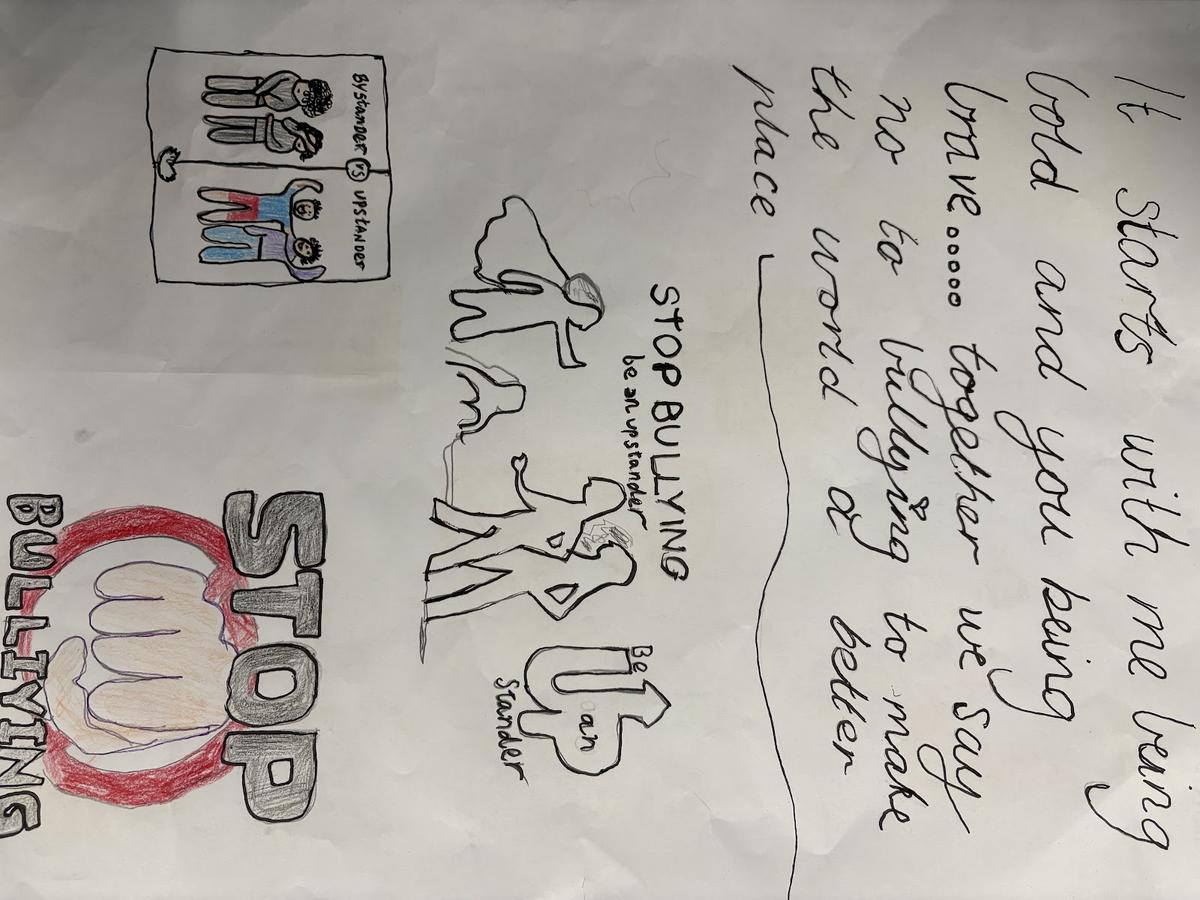 It starts with me being
bold and you being
brave..... together we say
no to bullying to make
the world a better
place
STOP BULLYING
be an upstander
Bystander vs upstander
Be
UP
an
Stander
STOP
BULLYING